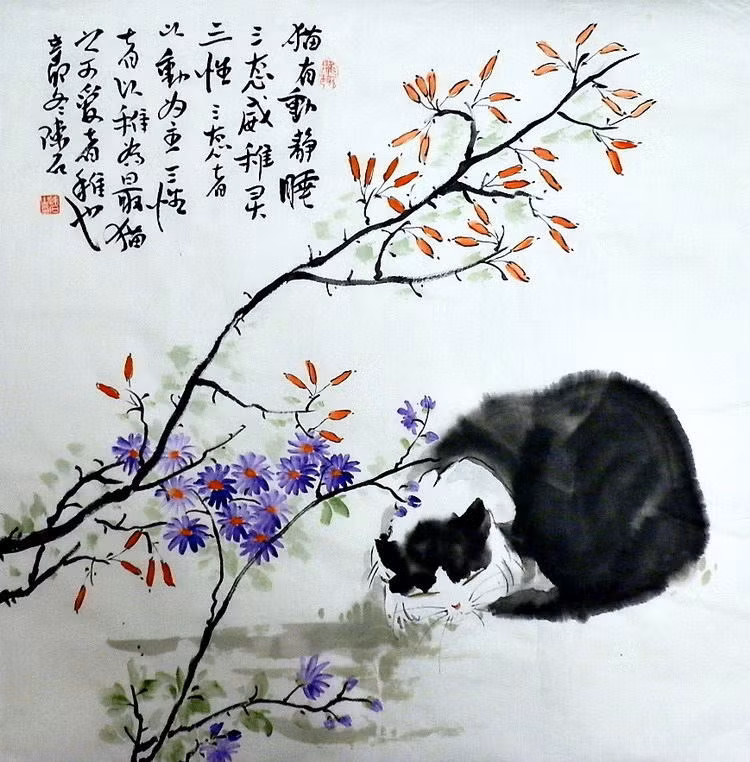 猫有動静睡
三态威稚灵
三性三态者
以動为主三性
者以稚為最猫
之可愛者稚也
辛卯冬陳石